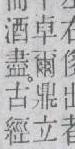 後出者
卓爾鼎立
而酒盡。古經